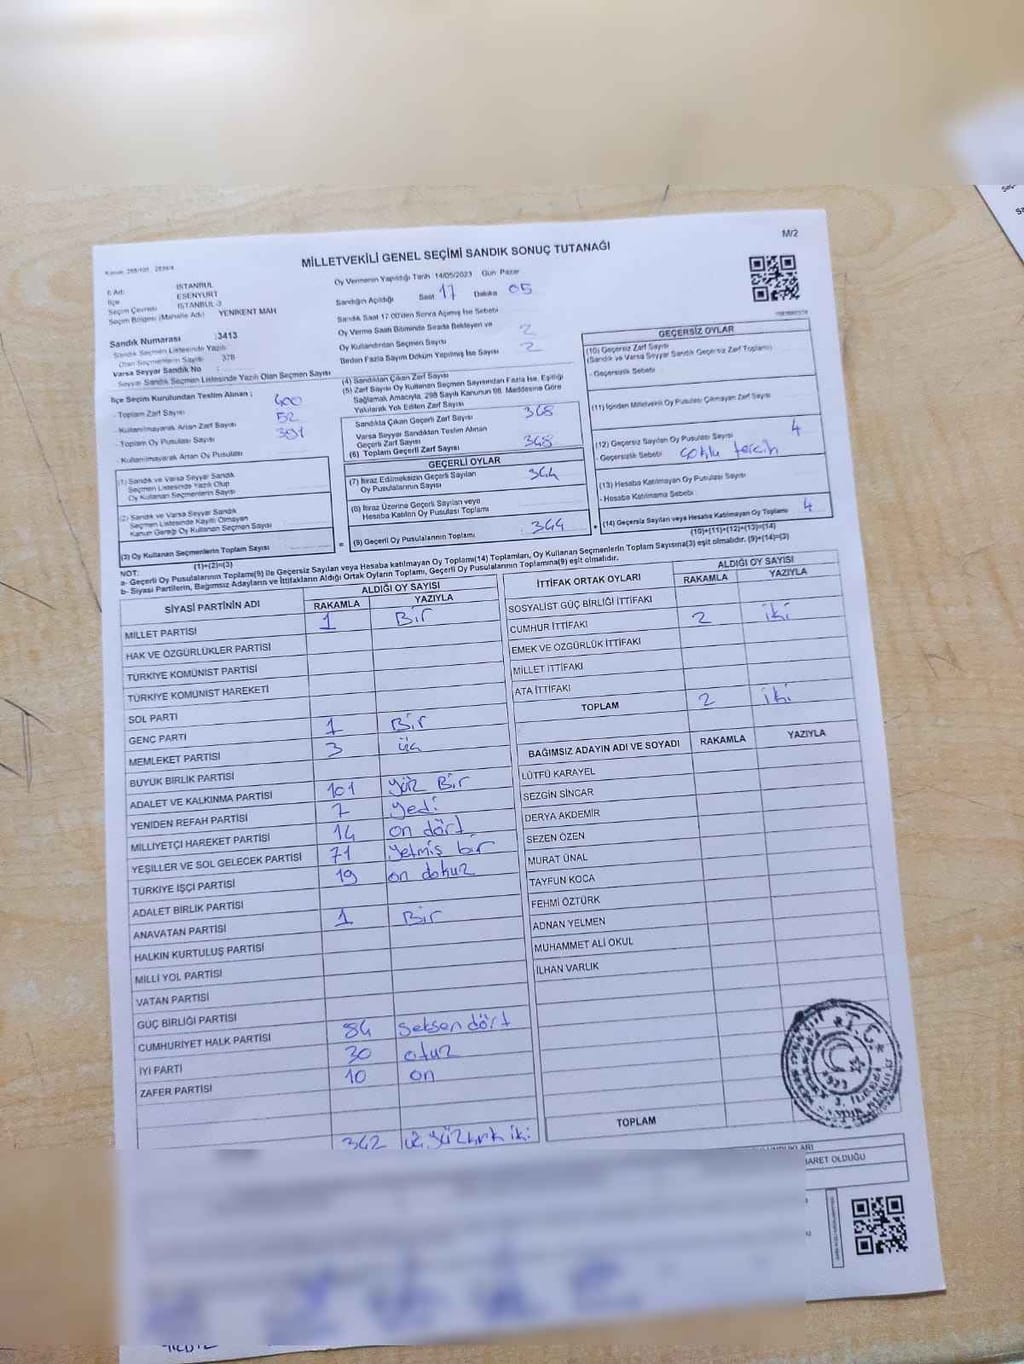 M/2
MİLLETVEKİLİ GENEL SEÇİMİ SANDIK SONUÇ TUTANAĞI
İl Adı: İSTANBUL
İlçe ESENYURT
Seçim Çevresi İSTANBUL-3
Seçim Bölgesi (Mahalle Adı) YENİKENT MAH
Sandık Numarası :3413
Sandık Seçmen Listesinde Yazılı
Olan Seçmenlerin Sayısı : 378
Varsa Seyyar Sandık No :
Seyyar Sandık Seçmen Listesinde Yazılı Olan Seçmen Sayısı
Oy Vermenin Yapıldığı Tarih 14/05/2023 Gün Pazar
Sandığın Açıldığı Saat 17 Dakika 05
Sandık Saat 17.00'den Sonra Açılmış İse Sebebi
Oy Verme Saati Bitiminde Sırada Bekleyen ve 2
Oy Kullandırılan Seçmen Sayısı 2
Birden Fazla Sayım Döküm Yapılmış İse Sayısı
İlçe Seçim Kurulundan Teslim Alınan ;
- Toplam Zarf Sayısı 400
- Kullanılmayarak Artan Zarf Sayısı 52
- Toplam Oy Pusulası Sayısı 391
- Kullanılmayarak Artan Oy Pusulası
(1) Sandık ve Varsa Seyyar Sandık
Seçmen Listesinde Yazılı Olup
Oy Kullanan Seçmenlerin Sayısı
(2) Sandık ve Varsa Seyyar Sandık
Seçmen Listesinde Kayıtlı Olmayan
Kanun Gereği Oy Kullanan Seçmen Sayısı
(3) Oy Kullanan Seçmenlerin Toplam Sayısı
(1)+(2)=(3)
(4) Sandıktan Çıkan Zarf Sayısı
(5) Zarf Sayısı Oy Kullanan Seçmen Sayısından Fazla İse, Eşitliği
Sağlamak Amacıyla, 298 Sayılı Kanunun 98. Maddesine Göre
Yakılarak Yok Edilen Zarf Sayısı
Sandıkta Çıkan Geçerli Zarf Sayısı 368
Varsa Seyyar Sandıktan Teslim Alınan
Geçerli Zarf Sayısı
(6) Toplam Geçerli Zarf Sayısı 348
GEÇERLİ OYLAR
(7) İtiraz Edilmeksizin Geçerli Sayılan 344
Oy Pusulalarının Sayısı
(8) İtiraz Üzerine Geçerli Sayılan veya
Hesaba Katılan Oy Pusulası Toplamı
= (9) Geçerli Oy Pusulalarının Toplamı 344 +
GEÇERSİZ OYLAR
(10) Geçersiz Zarf Sayısı
(Sandık ve Varsa Seyyar Sandık Geçersiz Zarf Toplamı)
- Geçersizlik Sebebi
(11) İçinden Milletvekili Oy Pusulası Çıkmayan Zarf Sayısı
(12) Geçersiz Sayılan Oy Pusulası Sayısı 4
- Geçersizlik Sebebi çoklu tercih
(13) Hesaba Katılmayan Oy Pusulası Sayısı
- Hesaba Katılmama Sebebi
(14) Geçersiz Sayılan veya Hesaba Katılmayan Oy Toplamı 4
(10)+(11)+(12)+(13)=(14)
NOT:
a- Geçerli Oy Pusulalarının Toplamı(9) ile Geçersiz Sayılan veya Hesaba katılmayan Oy Toplamı(14) Toplamları, Oy Kullanan Seçmenlerin Toplam Sayısına(3) eşit olmalıdır. (9)+(14)=(3)
b- Siyasi Partilerin, Bağımsız Adayların ve İttifakların Aldığı Ortak Oyların Toplamı, Geçerli Oy Pusulalarının Toplamına(9) eşit olmalıdır.
SİYASİ PARTİNİN ADI
ALDIĞI OY SAYISI
RAKAMLA YAZIYLA
MİLLET PARTİSİ 1 Bir
HAK VE ÖZGÜRLÜKLER PARTİSİ
TÜRKİYE KOMÜNİST PARTİSİ
TÜRKİYE KOMÜNİST HAREKETİ
SOL PARTİ
GENÇ PARTİ 1 Bir
MEMLEKET PARTİSİ 3 üç
BÜYÜK BİRLİK PARTİSİ
ADALET VE KALKINMA PARTİSİ 101 yüz Bir
YENİDEN REFAH PARTİSİ 7 yedi
MİLLİYETÇİ HAREKET PARTİSİ 14 on dört
YEŞİLLER VE SOL GELECEK PARTİSİ 71 yetmiş bir
TÜRKİYE İŞÇİ PARTİSİ 19 on dokuz
ADALET BİRLİK PARTİSİ
ANAVATAN PARTİSİ 1 Bir
HALKIN KURTULUŞ PARTİSİ
MİLLİ YOL PARTİSİ
VATAN PARTİSİ
GÜÇ BİRLİĞİ PARTİSİ
CUMHURİYET HALK PARTİSİ 84 seksen dört
İYİ PARTİ 30 otuz
ZAFER PARTİSİ 10 on
342 üç yüz kırk iki
İTTİFAK ORTAK OYLARI
ALDIĞI OY SAYISI
RAKAMLA YAZIYLA
SOSYALİST GÜÇ BİRLİĞİ İTTİFAKI
CUMHUR İTTİFAKI 2 iki
EMEK VE ÖZGÜRLÜK İTTİFAKI
MİLLET İTTİFAKI
ATA İTTİFAKI
TOPLAM 2 iki
BAĞIMSIZ ADAYIN ADI VE SOYADI RAKAMLA YAZIYLA
LÜTFÜ KARAYEL
SEZGİN SİNCAR
DERYA AKDEMİR
SEZEN ÖZEN
MURAT ÜNAL
TAYFUN KOCA
FEHMİ ÖZTÜRK
ADNAN YELMEN
MUHAMMET ALİ OKUL
İLHAN VARLIK
TOPLAM
T.C.
1923
ARET OLDUĞU